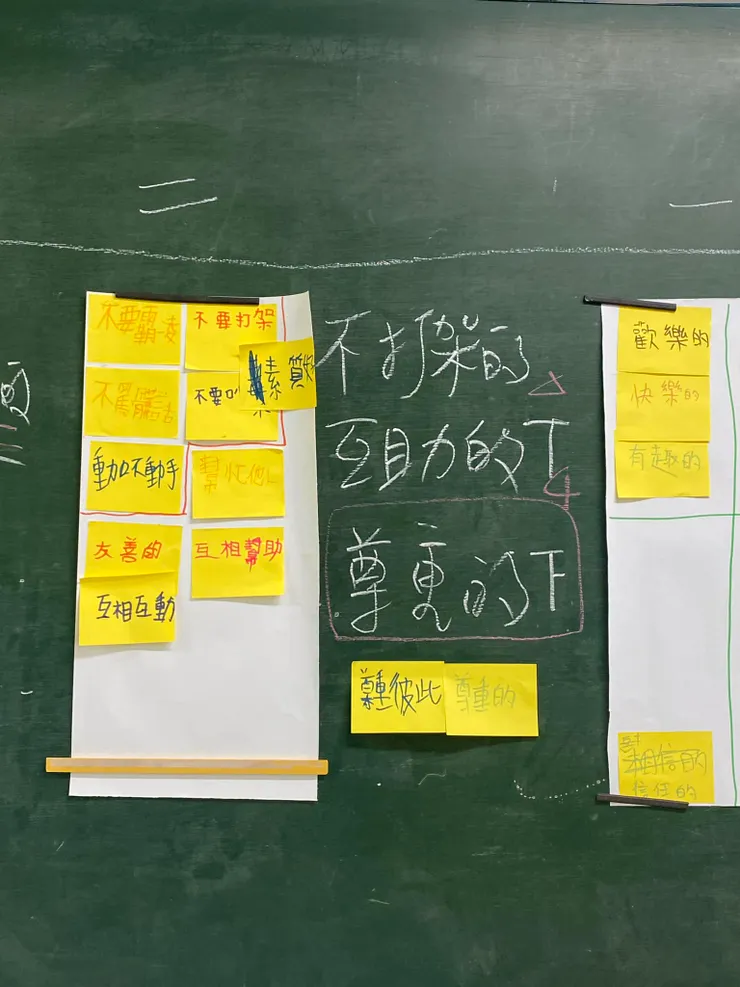 二
一
不要霸凌
不要打架
素質
不罵髒話
不要
動口不動手
幫忙他人
友善的
互相幫助
互相互動
不打架的
互助的 T
4
尊重的 下
尊重彼此
尊重的
歡樂的
快樂的
有趣的
相信的
信任的